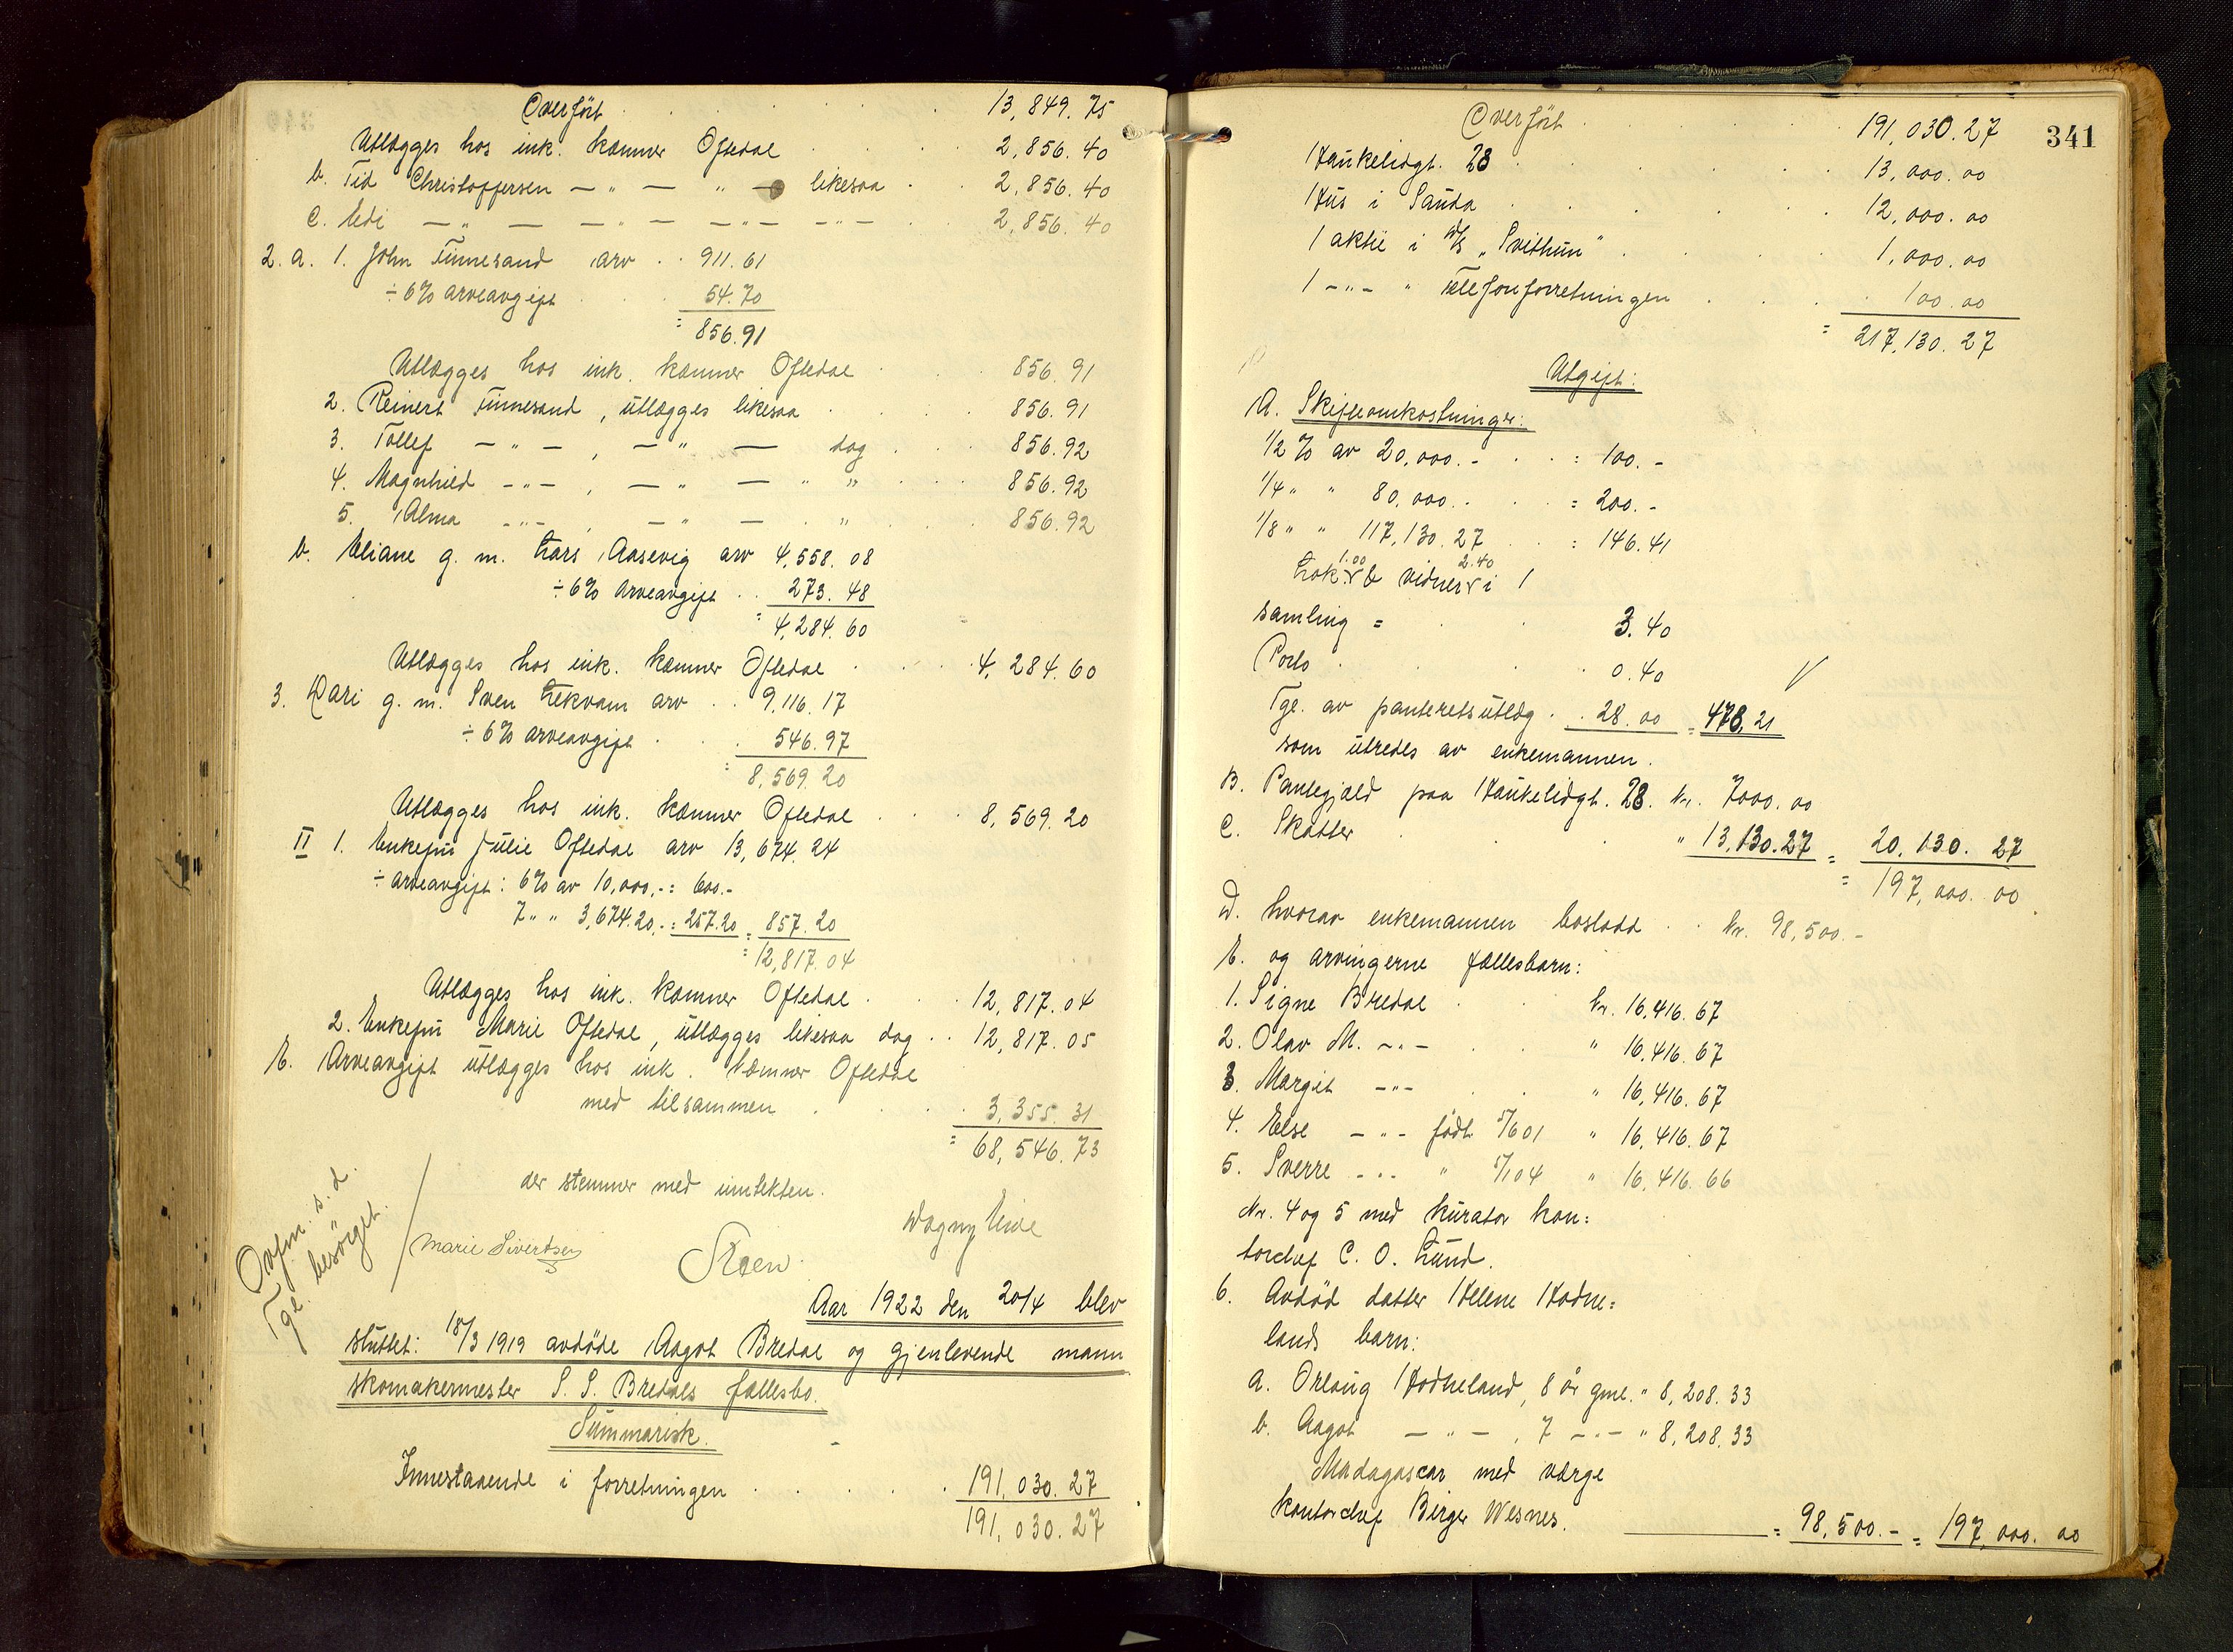 Overført . . . . . 13,849.75
Utlægges hos ink. kæmner Oftedal . . . . 2,856.40
b. Tid Christoffersen — " — " — likesaa . . 2,856.40
c. Edi — " — — " — — " — — " — . . 2,856.40
2. a. 1. John Finnesand arv . . 911.61
÷ 6% arveavgift . . . 54.70
= 856.91
Utlægges hos ink. kæmner Oftedal . . . 856.91
2. Reinert Finnesand, utlægges likesaa . . . . 856.91
3. Tollef — " — , — " — dog . . . 856.92
4. Magnhild — " — , — " — " " . . . 856.92
5. Alma — " — , — " — . " . . . 856.92
b. Eliane g. m. Lars Aasevig arv 4,558.08
÷ 6% arveavgift . . 273.48
= 4,284.60
Utlægges hos ink. kæmner Oftedal . . . . 4,284.60
3. Kari g. m. Sven Lekvam arv . . 9,116.17
÷ 6% arveavgift . . . 546.97
= 8,569.20
Utlægges hos ink. kæmner Oftedal . . . . 8,569.20
II 1. Enkefru Julie Oftedal arv 13,674.24
÷ arveavgift: 6% av 10,000,- = 600.-
7 " " 3,674.20,- = 257.20 = 857.20
= 12,817.04
Utlægges hos ink. kæmner Oftedal . . . 12,817.04
2. Enkefru Marie Oftedal, utlægges likesaa dog . . 12,817.05
E. Arveavgift utlægges hos ink. kæmner Oftedal
med tilsammen . . . . 3,355.31
= 68,546.73
der stemmer med inntekten.
Ovfm. s. d.
Tgl. besørget.
Marie Sivertsen
Steen.
Dagny Eide
Aar 1922 den 20/4 blev
sluttet: 18/3 1919 avdøde Aagot Bredal og gjenlevende mann
skomakermester S. S. Bredals fællesbo.
Summarisk.
Innestaaende i forretningen . . . . . . 191,030.27
191,030.27
341
Overført . . . . . . 191,030.27
Haukelidgt. 28 . . . . . 13,000.00
Hus i Sauda . . . . . . 12,000.00
1 aktie i D/S „Svithun" . . . . 1,000.00
1 - " - " Telefonforretningen . . . . 100.00
= 217,130.27
Utgift:
A. Skifteomkostninger:
1/2 % av 20,000.- . . = 100.-
1/4 " " 80,000.- . . = 200.-
1/8 " " 117,130.27 . . = 146.41
1.00 2.40
Lok. & vidner i 1
samling = . . 3.40
Porto . . . 0.40
Tgl. av panteretsutlæg . . 28.00 = 478.21
som utredes av enkemannen.
B. Pantegjæld paa Haukelidgt. 28. kr. 7000.00
C. Skatter . . . " 13,130.27 = 20,130.27
= 197,000.00
D. hvorav enkemannen boslodd . . kr. 98,500.-
E. og arvingerne fællesbarn:
1. Signe Bredal . . kr. 16,416.67
2. Olav M. - " - . . " 16,416.67
3. Margit - " - . . " 16,416.67
4. Else - " - født 5/6 01 " 16,416.67
5. Sverre - " - " 5/1 04 " 16,416.66
Nr. 4 og 5 med kurator kon=
torchef C. O. Lund.
6. Avdød datter Helene Hodne=
lands barn:
a. Orlaug Hodneland, 8 år gml. " 8,208.33
b. Aagot — " — , 7 - " - " 8,208.33
Madagascar med værge
kontorchef Birger Wesnes. — = 98,500.- = 197,000.00